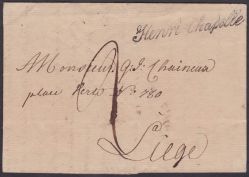 Henri-Chapelle
Monsieur G. J. Chaineux
place Verte N.º 780
Liège